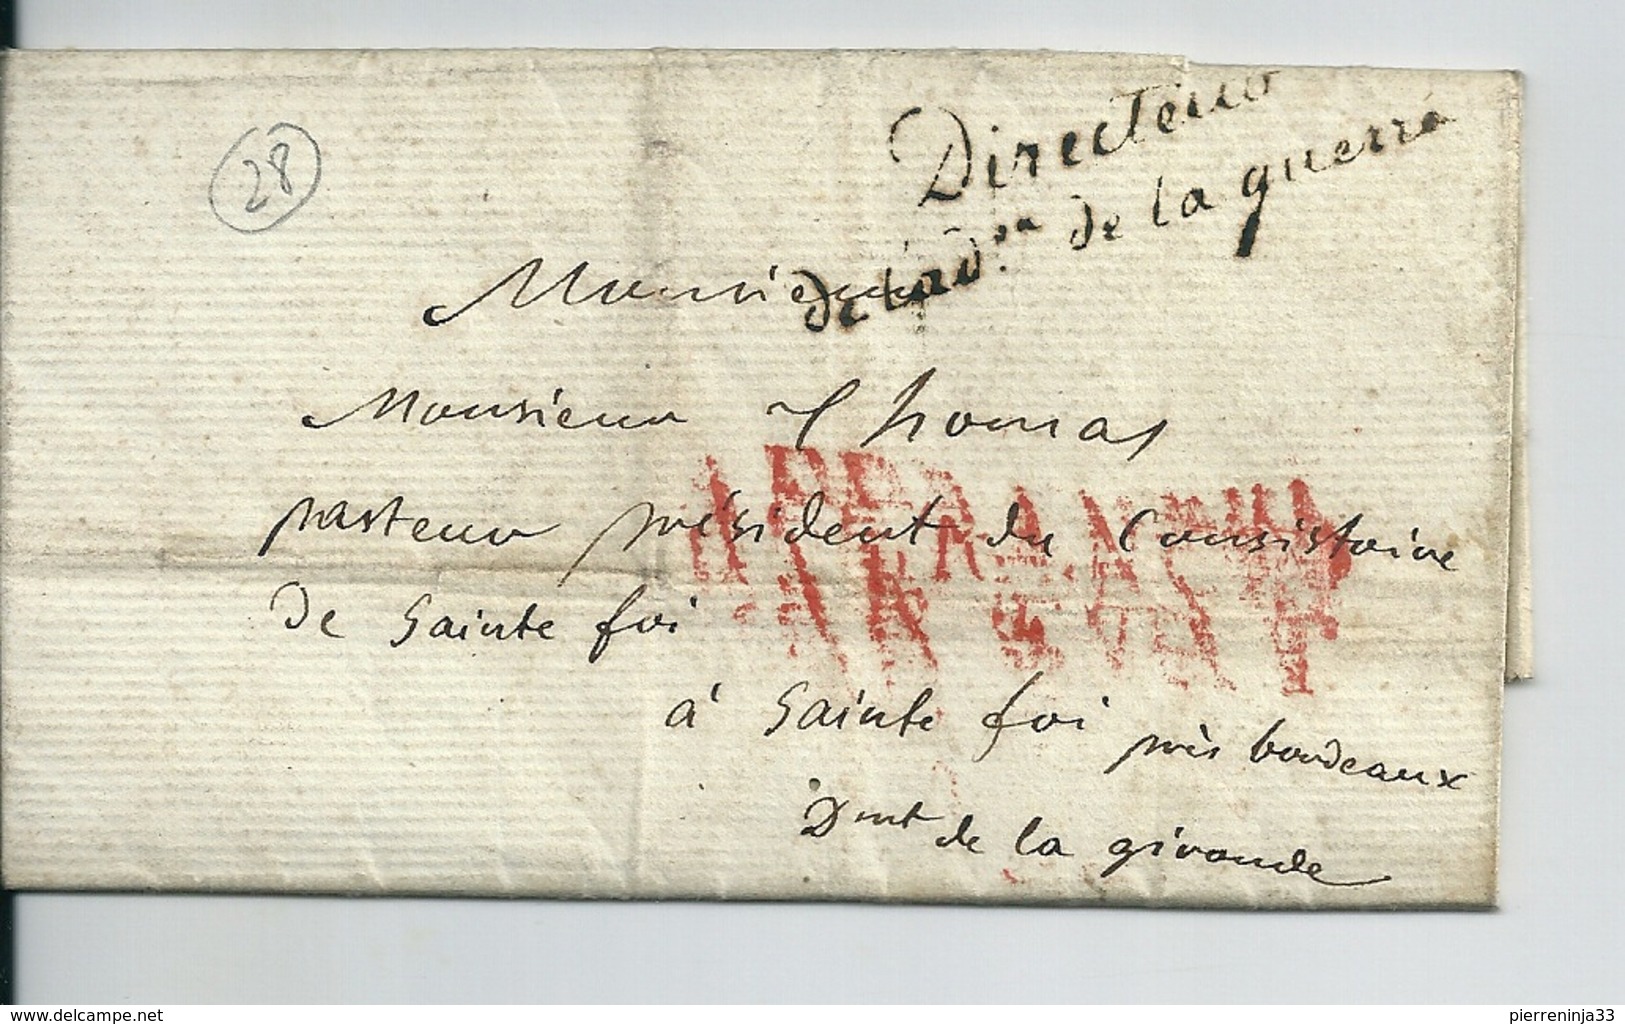 28
Directeur
de l'adon. de la guerre
Monsieur
Monsieur Thomas
pasteur président du Consistoire
de Sainte foi
à Sainte foi près bordeaux
Dmt de la gironde
www.delcampe.net
pierreninja33